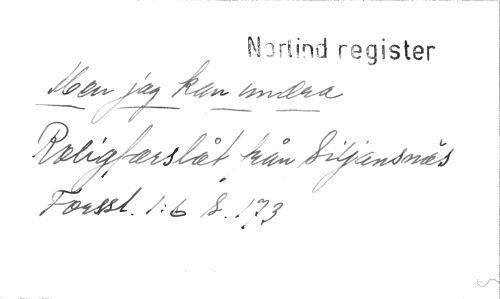 Norlind register
Men jag kan undra
Roligfærslåt från Siljansnäs
Forsst. 1:6 S. 173